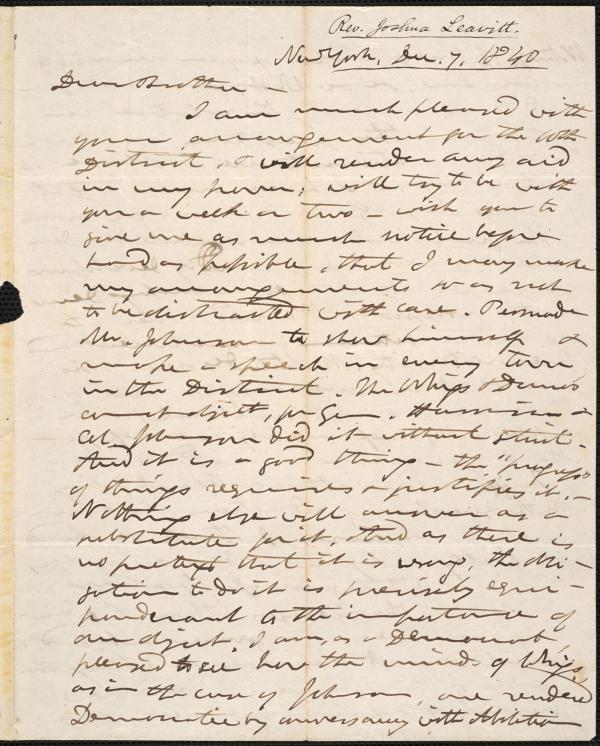 Rev. Joshua Leavitt.
New York, Dec. 7, 1840
Dear Brother –
I am much pleased with
your arrangement for the 10th
District, & will render any aid
in my power; will try to be with
you a week or two – wish you to
give me as much notice before
hand as possible, that I may make
my arrangements so as not
to be distracted with care. Persuade
Mr. Johnson to show himself &
make a speech in every town
in the District. The Whigs & Democs
cannot object, for Gen. Harrison &
Col. Johnson did it without stint.
And it is a good thing – the "progress"
of things requires & justifies it. –
Nothing else will answer as a
substitute for it. And as there is
no pretext that it is wrong, the obli-
gation to do it is precisely equi-
ponderant to the importance of
our object. I am, as a Democrat,
pleased to see how the minds of Whigs,
as in the case of Johnson, are rendered
Democratic by conversancy with Abolition